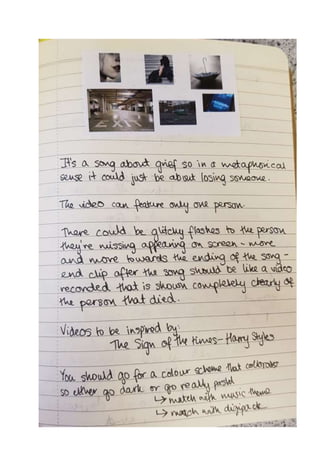 EXIT
It's a song about grief so in a metaphorical
sense it could just be about losing someone.
The video can feature only one person.
There could be glitchy flashes to the person
they're missing appearing on screen - more
and more towards the ending of the song -
end clip after the song should be like a video
recorded that is shown completely clearly of
the person that died.
Videos to be inspired by:
The Sign of the times - Harry Styles
You should go for a colour scheme that
so either go dark or go really pastel
↳ match with music theme
↳ match with digipack